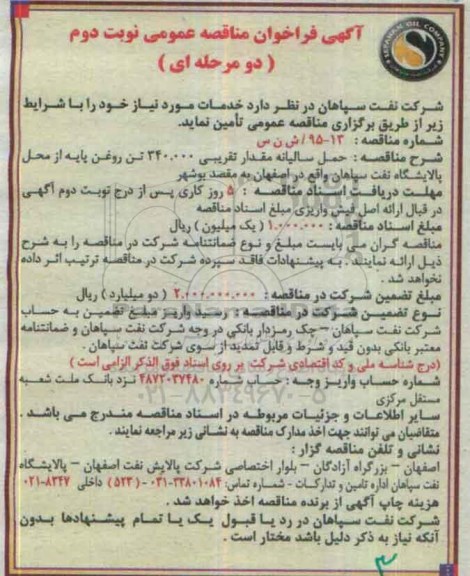 SEPAHAN OIL COMPANY
آگهی فراخوان مناقصه عمومی نوبت دوم
( دو مرحله ای )
شرکت نفت سپاهان در نظر دارد خدمات مورد نیاز خود را با شرایط
زیر از طریق برگزاری مناقصه عمومی تأمین نماید.
شماره مناقصه : ۱۳-۹۵/ش ن س
شرح مناقصه : حمل سالیانه مقدار تقریبی ۳۴۰.۰۰۰ تن روغن پایه از محل
پالایشگاه نفت سپاهان واقع در اصفهان به مقصد بوشهر
مهلت دریافت اسناد مناقصه : ۵ روز کاری پس از درج نوبت دوم آگهی
در قبال ارائه اصل فیش واریزی مبلغ اسناد مناقصه
مبلغ اسناد مناقصه : ۱.۰۰۰.۰۰۰ ( یک میلیون ) ریال
مناقصه گران می بایست مبلغ و نوع ضمانتنامه شرکت در مناقصه را به شرح
ذیل ارائه نمایند . به پیشنهادات فاقد سپرده شرکت در مناقصه ترتیب اثر داده
نخواهد شد .
مبلغ تضمین شرکت در مناقصه : ۲.۰۰۰.۰۰۰.۰۰۰ ( دو میلیارد ) ریال
نوع تضمین شرکت در مناقصه : رسید واریز مبلغ تضمین به حساب
شرکت نفت سپاهان – چک رمزدار بانکی در وجه شرکت نفت سپاهان و ضمانتنامه
معتبر بانکی بدون قید و شرط و قابل تمدید از سوی شرکت نفت سپاهان .
(درج شناسه ملی و کد اقتصادی شرکت بر روی اسناد فوق الذکر الزامی است )
شماره حساب واریز وجه : حساب شماره ۴۸۷۲۰۳۷۴۸۰ نزد بانک ملت شعبه
مستقل مرکزی
سایر اطلاعات و جزئیات مربوطه در اسناد مناقصه مندرج می باشد .
متقاضیان می توانند جهت اخذ مدارک مناقصه به نشانی زیر مراجعه نمایند .
نشانی و تلفن مناقصه گزار :
اصفهان – بزرگراه آزادگان – بلوار اختصاصی شرکت پالایش نفت اصفهان – پالایشگاه
نفت سپاهان اداره تامین و تدارکات - شماره تماس: ۳۳۸۰۱۰۸۴-۰۳۱ - ( ۵۲۳ ) داخلی ۸۳۴۷-۰۲۱
هزینه چاپ آگهی از برنده مناقصه اخذ خواهد شد .
شرکت نفت سپاهان در رد یا قبول یک یا تمام پیشنهادها بدون
آنکه نیاز به ذکر دلیل باشد مختار است .
۰۲۱-۸۸۳۴۹۶۷۰-۵